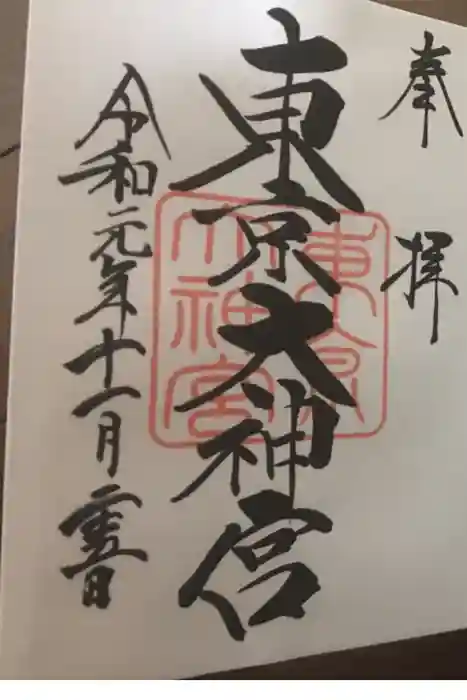 奉拝
東京大神宮
東京
大神宮
令和元年十一月二十五日